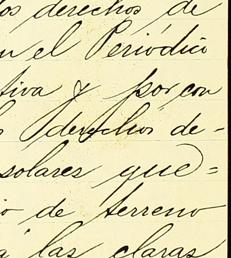 los derechos de
en el Periódico
tiva y por con
s derechos de-
solares que=
io de terreno
á las claras